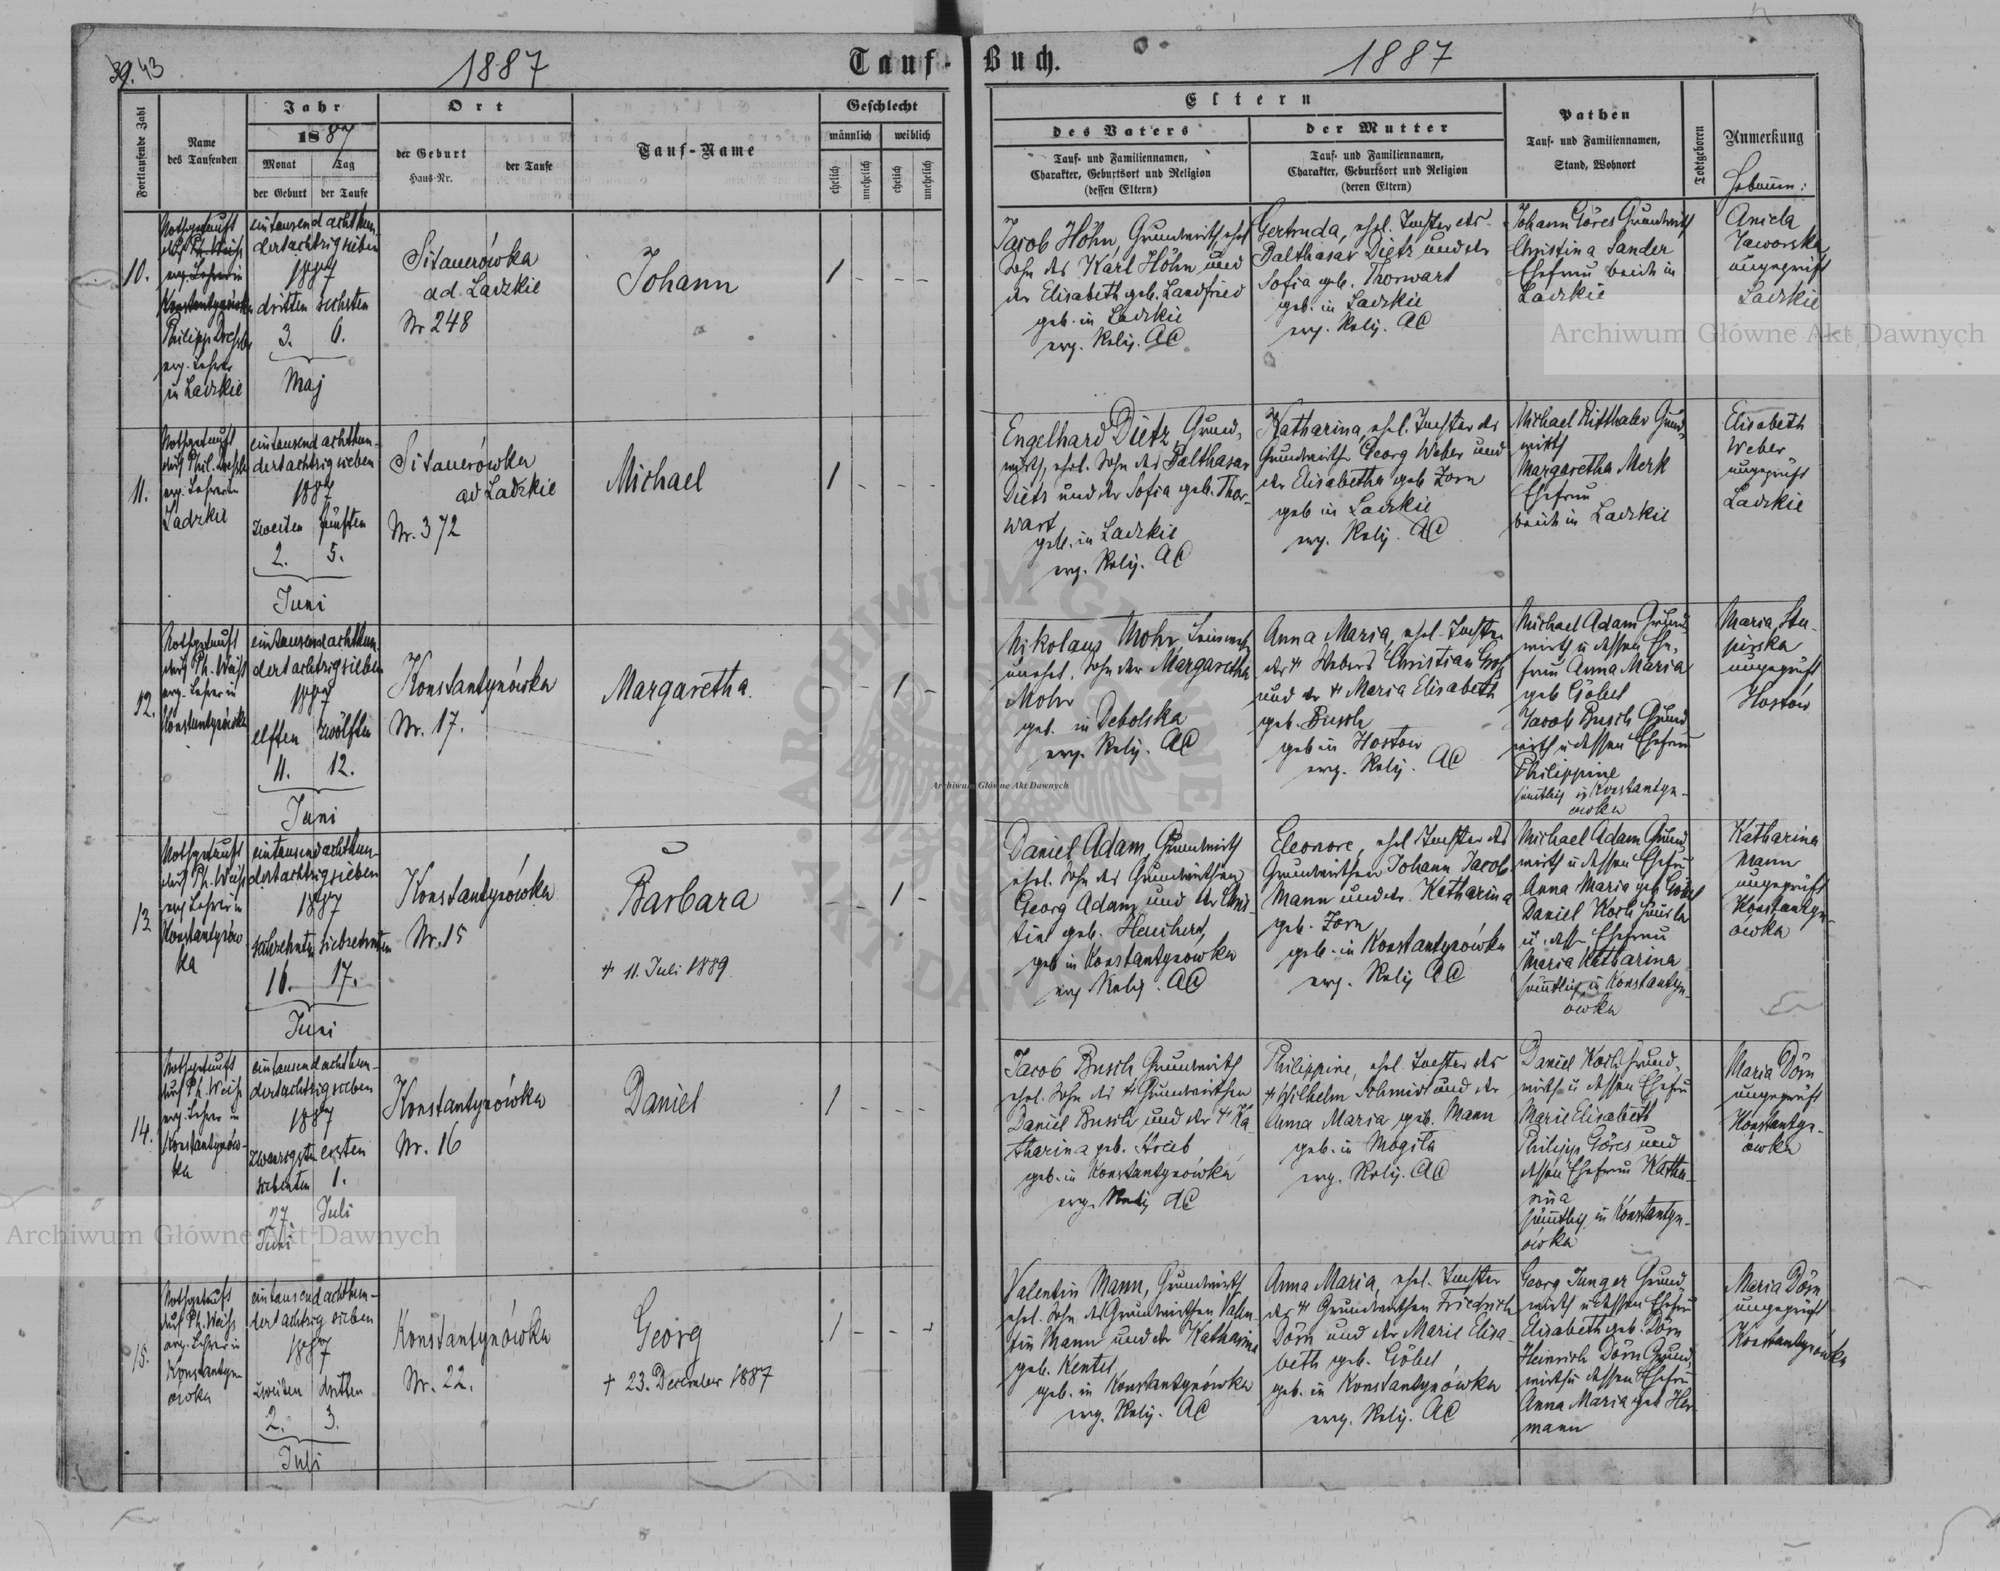 39. 43
1887
Tauf-Buch.
1887
Fortlaufende Zahl
Name
des Taufenden
Jahr
1887
Monat
Tag
der Geburt
der Taufe
Ort
der Geburt
Haus-Nr.
der Taufe
Tauf-Name
Geschlecht
männlich
weiblich
ehelich
unehelich
ehelich
unehelich
Eltern
des Vaters
Tauf- und Familiennamen,
Charakter, Geburtsort und Religion
(dessen Eltern)
der Mutter
Tauf- und Familiennamen,
Charakter, Geburtsort und Religion
(deren Eltern)
Pathen
Tauf- und Familiennamen,
Stand, Wohnort
Todtgeboren
Anmerkung
10.
Nothgetauft
durch Ph. Weiß
evg. Lehrer in
Konstantynówka
Philipp Drechsler
evg. Lehrer
in Ladzkie
eintausend achthun-
dertachtzigsieben
1887
dritten sechsten
3. 6.
Maj
Sitauerówka
ad Ladzkie
Nr 248
Johann
1 - - -
Jacob Höhn, Grundwirth, ehel.
Sohn des Karl Höhn und
der Elisabeth geb. Landfried
geb. in Ladzkie
evg. Relig. AC
Gertruda, ehel. Tochter des
Balthasar Dietz und der
Sofia geb. Thorwart
geb. in Ladzkie
evg. Relig. AC
Johann Göres Grundwirth
Christina Sander
Ehefrau beide in
Ladzkie
Aniela
Jaworska
ungeprüft
Ladzkie
11.
Nothgetauft
durch Phil. Drechsler
evg. Lehrer in
Ladzkie
eintausend achthun-
dertachtzigsieben
1887
zweiten fünften
2. 5.
Juni
Sitauerówka
ad Ladzkie
Nr. 372
Michael
1 - - -
Engelhard Dietz, Grund-
wirth, ehel. Sohn des Balthasar
Dietz und der Sofia geb. Thor-
wart
geb. in Ladzkie
evg. Relig. AC
Katharina, ehel. Tochter des
Grundwirth Georg Weber und
der Elisabetha geb Zorn
geb in Ladzkie
evg. Relig. AC
Michael Ritthaler Grund-
wirth
Margaretha Merk
Ehefrau
beide in Ladzkie
Elisabeth
Weber
ungeprüft
Ladzkie
12.
Nothgetauft
durch Ph. Weiß
evg. Lehrer in
Konstantynówka
eintausendachthun-
dertachtzigsieben
1887
elften zwölften
11. 12.
Juni
Konstantynówka
Nr. 17.
Margaretha.
- - 1 -
Nikolaus Mohr,
unehel. Sohn der Margaretha
Mohr
geb. in Debolska
evg. Relig. AC
Anna Maria, ehel. Tochter
des + Webers Christian
und der + Maria Elisabeth
geb. Busch
geb in Hostow
evg. Relig. AC
Michael Adam Grund-
wirth u dessen Ehe-
frau Anna Maria
geb Göbel
Jacob Busch Grund-
wirth u dessen Ehefrau
Philippine
sämtlich in Konstantyn-
owka
Maria
ungeprüft
Hostów
13
Nothgetauft
durch Ph. Weiß
evg Lehrer in
Konstantynów
ka
eintausendachthun-
dertachtzigsieben
1887
sechzehnten siebzehnten
16. 17.
Juni
Konstantynówka
Nr. 15
Barbara
+ 11. Juli 1889.
- - 1 -
Daniel Adam Grundwirth
ehel. Sohn des Grundwirthen
Georg Adam und der Chris-
tine geb. Heuchert,
geb in Konstantynówka
evg Relig. AC
Eleonore, ehel Tochter des
Grundwirthen Johann Jacob
Mann und der Katharina
geb. Zorn
geb. in Konstantynówka
evg. Relig AC
Michael Adam Grund-
wirth u dessen Ehefrau
Anna Maria geb Göbel
Daniel Koch Häusler
u. dess. Ehefrau
Maria Katharina
sämtlich in Konstantyn-
ówka
Katharina
Mann
ungeprüft
Konstantyn-
owka
14.
Nothgetauft
durch Ph. Weiß
evg. Lehrer in
Konstantynów-
ka
eintausendachthun-
dertachtzigsieben
1887
zwanzigsten ersten
siebenten 1.
27 Juli
Juni
Konstantynówka
Nr. 16
Daniel
1 - - -
Jacob Busch Grundwirth
ehel. Sohn des + Grundwirthen
Daniel Busch und der + Ka-
tharina geb.
geb. in Konstantynówka
evg. Relig AC
Philippine, ehel. Tochter des
+ Wilhelm Schmidt und der
Anna Maria geb. Mann
geb. in Mogila
evg. Relig. AC
Daniel Koch Grund-
wirth u dessen Ehefrau
Marie Elisabeth
Philipp Göres und
dessen Ehefrau Katha-
rina
sämtlich in Konstantyn-
ówka
Maria Dörn
ungeprüft
Konstantyn-
ówka
15.
Nothgetauft
durch Ph. Weiß
evg. Lehrer in
Konstantyn-
owka
eintausendachthun-
dertachtzig sieben
1887
zweiten dritten
2. 3.
Juli
Konstantynówka
Nr. 22.
Georg
+ 23. December 1887
1 - - -
Valentin Mann, Grundwirth
ehel. Sohn des Grundwirthen Valen-
tin Mann und der Katharina
geb. Kentel
geb. in Konstantynówka
evg. Relig. AC
Anna Maria, ehel. Tochter
des + Grundwirthen Friedrich
Dörn und der Marie Elisa-
beth geb. Göbel
geb. in Konstantynówka
evg. Relig. AC
Georg Junger Grund-
wirth u dessen Ehefrau
Elisabeth geb. Dörn
Heinrich Dörn Grund-
wirth u dessen Ehefrau
Anna Maria geb Her-
mann
Maria Dörn
ungeprüft
Konstantynówka
Archiwum Główne Akt Dawnych
Archiwum Główne Akt Dawnych
Archiwum Główne Akt Dawnych
ARCHIWUM GŁÓWNE AKT DAWNYCH